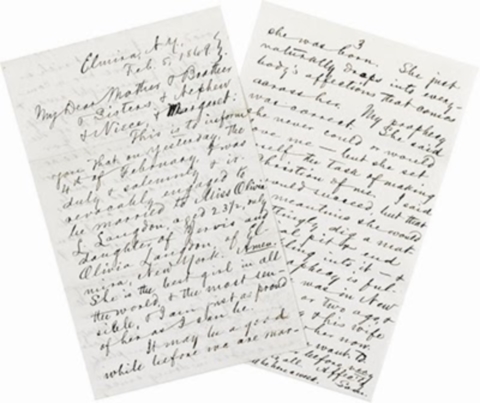 Elmira, N.Y.
Feb. 5, 1869
My Dear Mother & Brother
& Sisters & Nephew
& Niece, & Margaret:
This is to inform
you that on yesterday, the
4th of February, I was
duly & solemnly & ir-
revocably engaged to
be married to Miss Olivia
L. Langdon, aged 23 1/2, only
daughter of Jervis and
Olivia Langdon, of El-
mira, New York. Amen.
She is the best girl in all
the world, & the most sen-
sible, & I am just as proud
of her as I can be.
It may be a good
while before we are mar-
3
she was born. She just
naturally drops into every-
body's affections that comes
across her. My prophecy
was correct. She said
she never could or would
love me — but she set
herself the task of making
Christian of me. I said
would succeed, but that
meantime she would
dig a mat-
pit and
into it — &
prophecy is ful-
man in New
or two ago, &
& his wife
her now
want to
before very
all. Affectly
Sam.